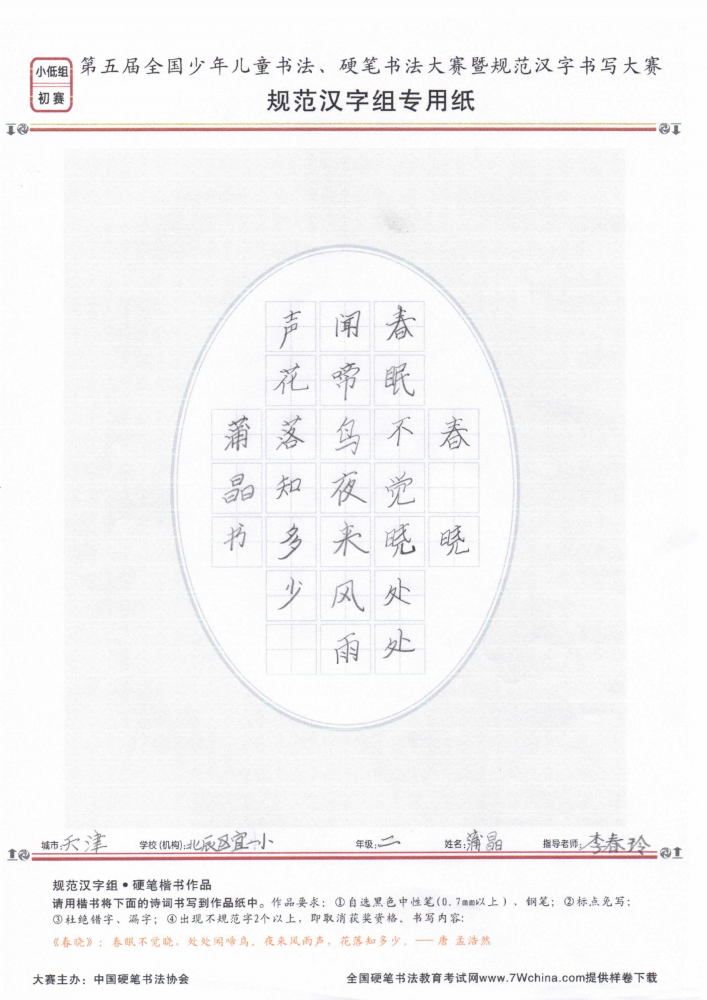 小低组
初赛
第五届全国少年儿童书法、硬笔书法大赛暨规范汉字书写大赛
规范汉字组专用纸
春晓
春眠不觉晓处处
闻啼鸟夜来风雨
声花落知多少
蒲晶书
城市:天津 学校(机构):北辰区宜一小 年级:二 姓名:蒲晶 指导老师:李春玲
规范汉字组•硬笔楷书作品
请用楷书将下面的诗词书写到作品纸中。作品要求：①自选黑色中性笔(0.7mm以上)、钢笔；②标点免写；
③杜绝错字、漏字；④出现不规范字2个以上，即取消获奖资格。书写内容：
《春晓》：春眠不觉晓，处处闻啼鸟。夜来风雨声，花落知多少。——唐 孟浩然
大赛主办：中国硬笔书法协会 全国硬笔书法教育考试网www.7Wchina.com提供样卷下载